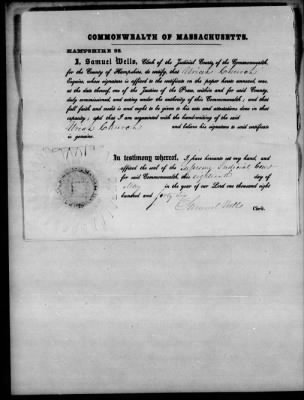 COMMONWEALTH OF MASSACHUSETTS.
HAMPSHIRE SS.
I, Samuel Wells, Clerk of the Judicial Courts of the Commonwealth,
for the County of Hampshire, do certify, that Uriah Church
Esquire, whose signature is affixed to the certificate on the paper hereto annexed, was,
at the date thereof, one of the Justices of the Peace, within and for said County,
duly commissioned, and acting under the authority of this Commonwealth; and that
full faith and credit is and ought to be given to his acts and attestations done in that
capacity; and that I am acquainted with the handwriting of the said
Uriah Church and believe his signature to said certificate
is genuine.
In testimony whereof, I have hereunto set my hand, and
affixed the seal of the Supreme Judicial Court
for said Commonwealth, this eighteenth day of
May in the year of our Lord one thousand eight
hundred and forty
Samuel Wells Clerk.